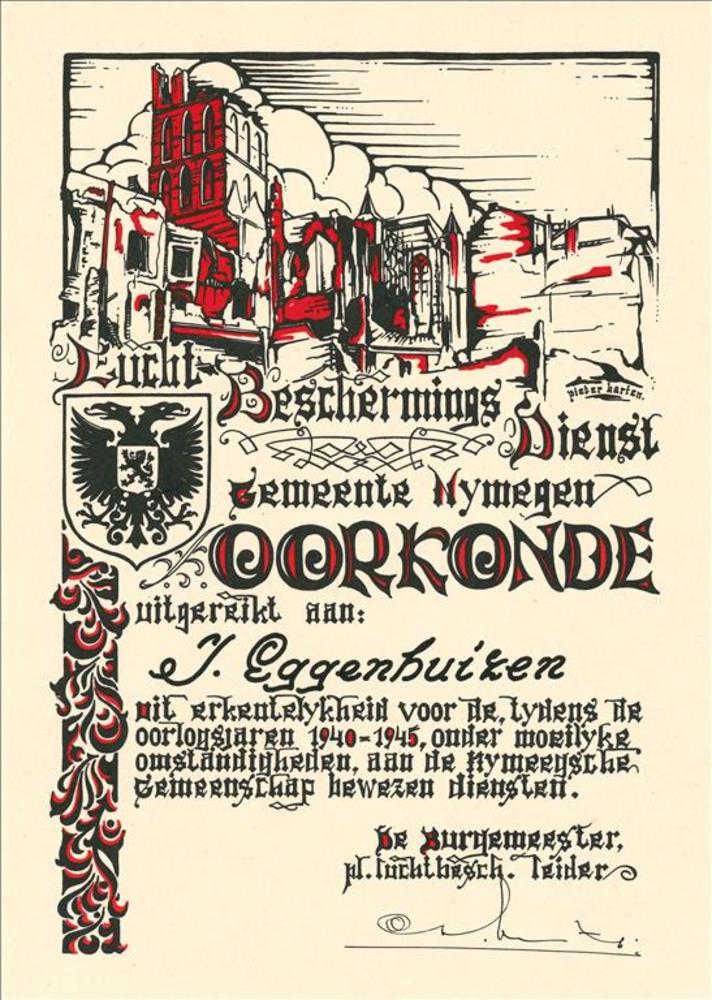 Lucht-
Beschermings
pieter karten.
Dienst
Gemeente Nymegen
OORKONDE
uitgereikt aan:
J. Eggenhuizen
uit erkentelykheid voor de, tydens de
oorlogsjaren 1940-1945, onder moeilyke
omstandigheden, aan de Nymeegsche
Gemeenschap bewezen diensten.
De Burgemeester,
pl. luchtbesch. leider